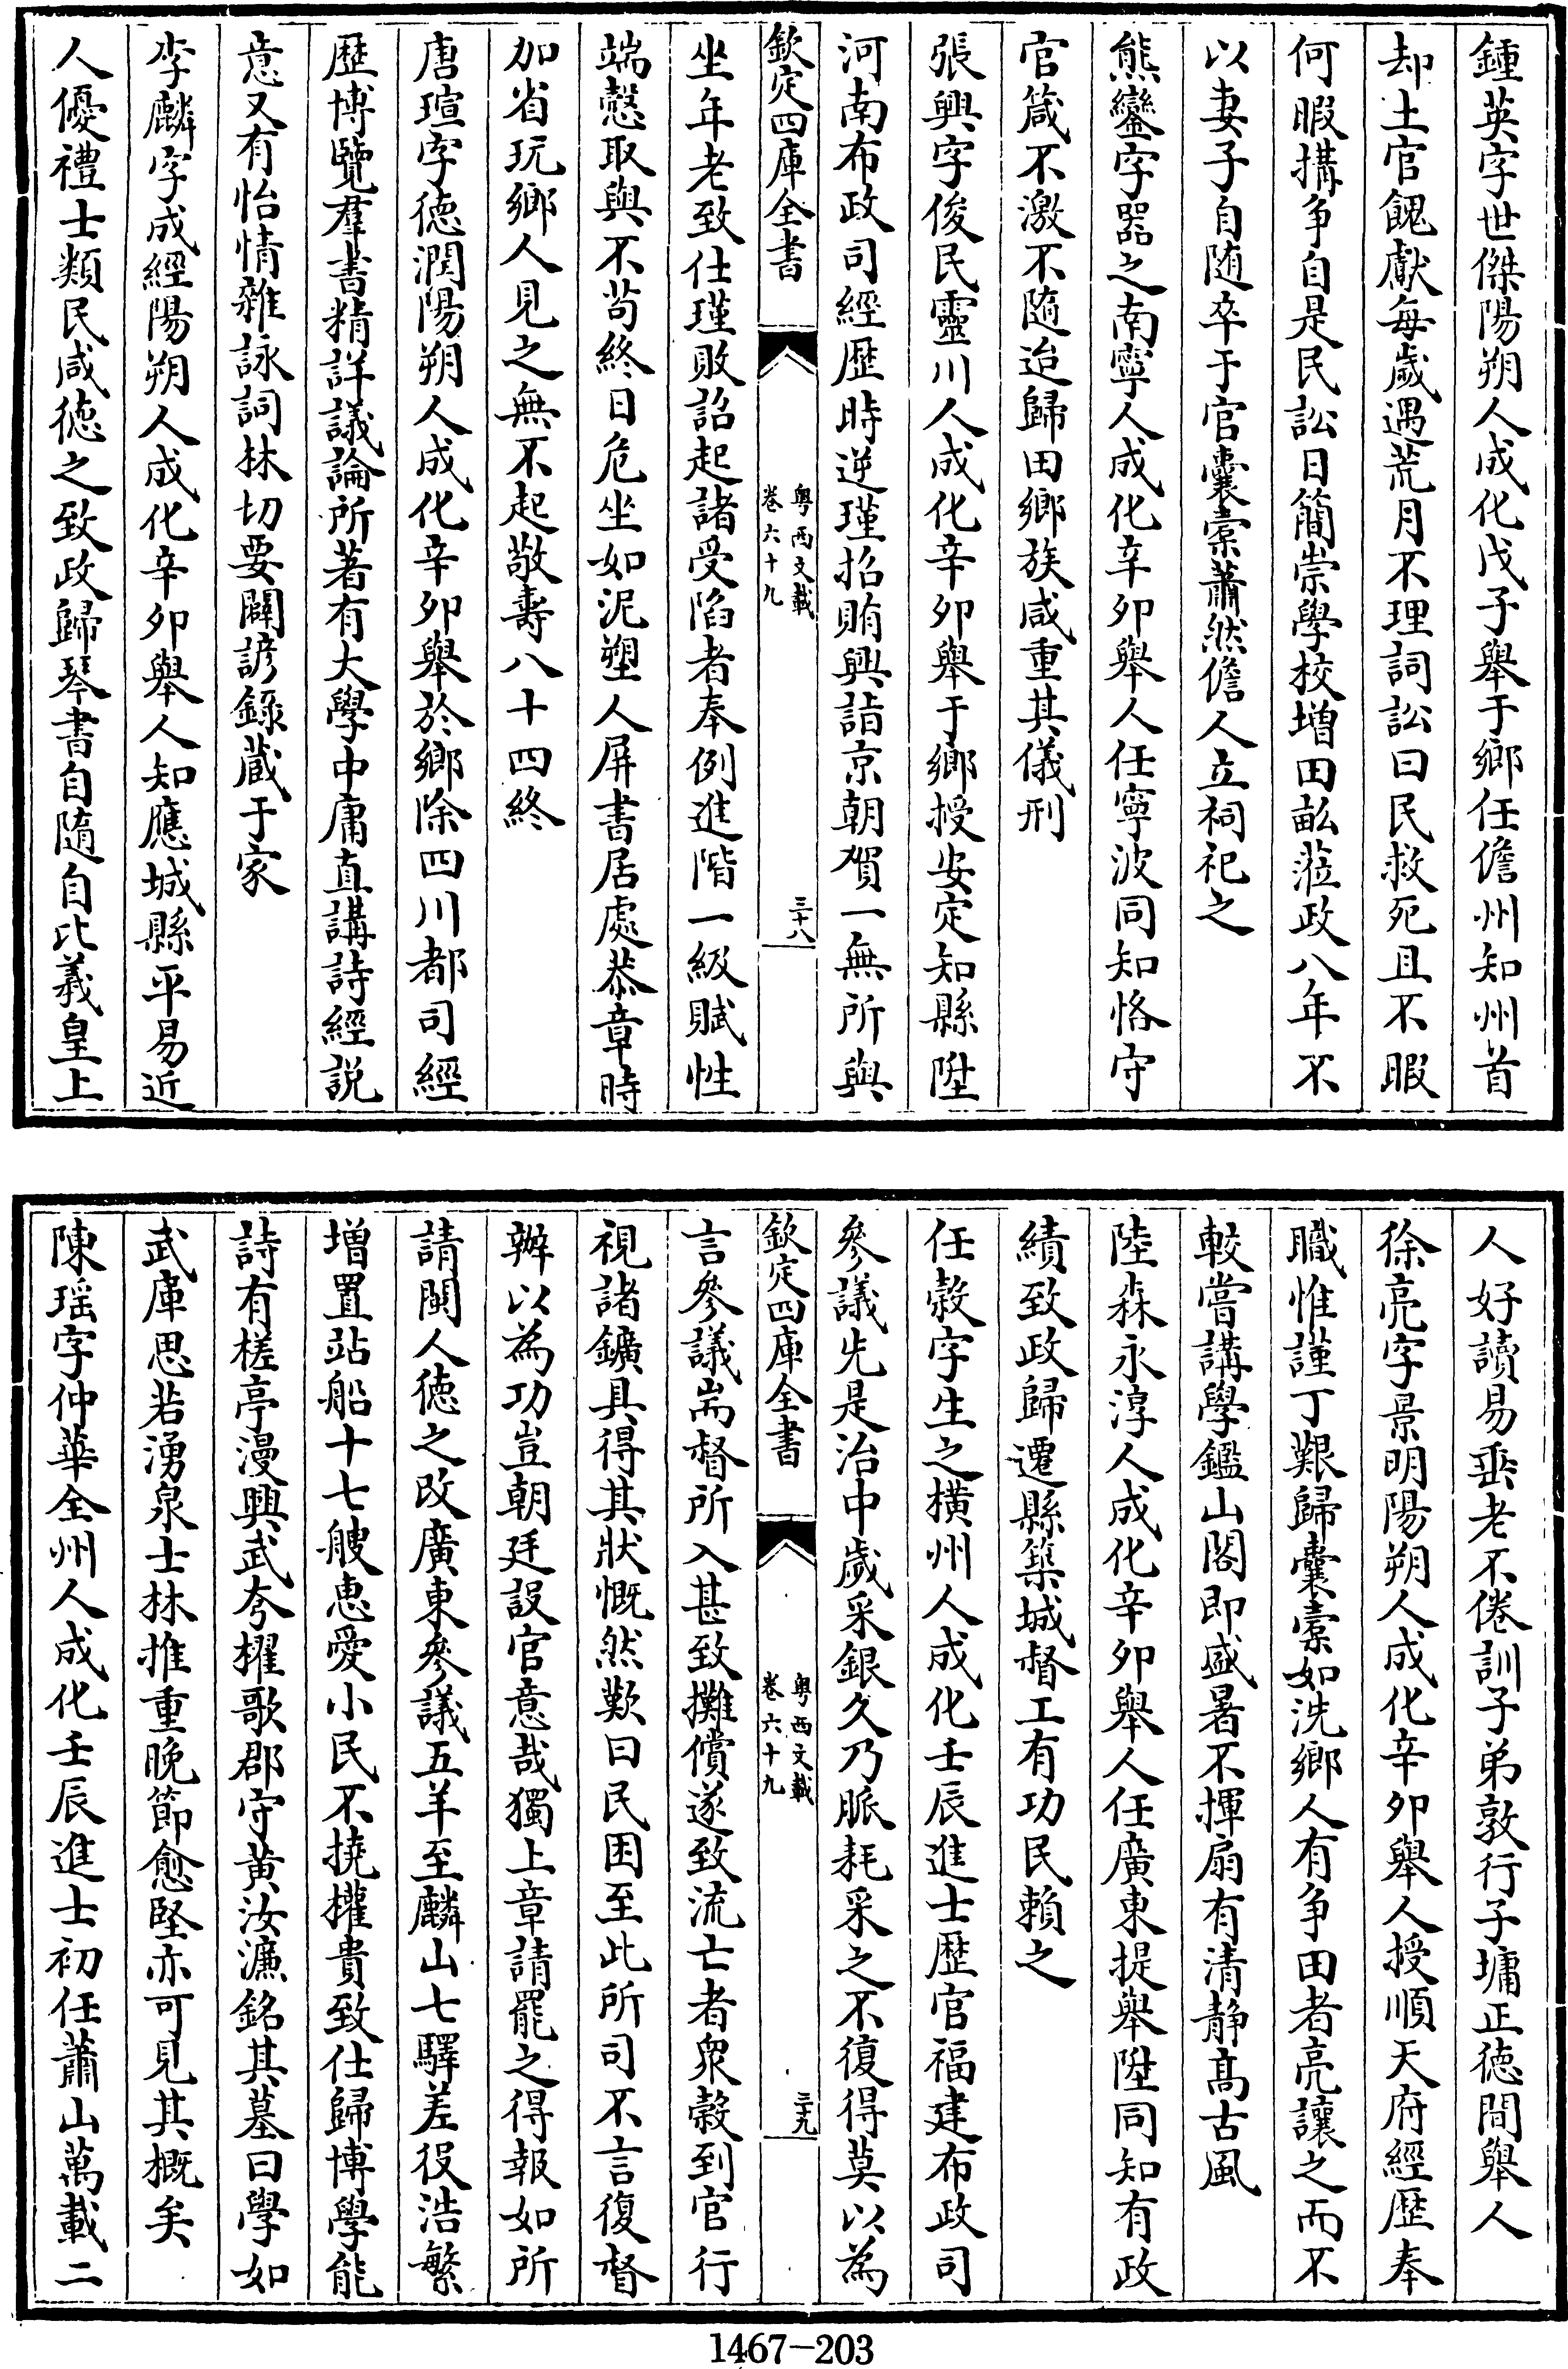 鍾英字世傑陽朔人成化戊子舉于鄉任儋州知州首
却土官餽獻每歲遇荒月不理詞訟曰民救死且不暇
何暇搆争自是民訟日簡崇學校增田畝蒞政八年不
以妻子自随卒于官囊橐蕭然儋人立祠祀之
熊鑾字器之南寧人成化辛卯舉人任寧波同知恪守
官箴不激不隨迨歸田鄉族咸重其儀刑
張興字俊民靈川人成化辛卯舉于鄉授安定知縣陞
河南布政司經歷時逆瑾招賄興詣京朝賀一無所與
欽定四庫全書
粤西文載
卷六十九
三十八
坐年老致仕瑾敗詔起諸受陷者奉例進階一級賦性
端慤取與不苟終日危坐如泥塑人屏書居處恭章時
加省玩鄉人見之無不起敬壽八十四終
唐瑄字德潤陽朔人成化辛卯舉於鄉除四川都司經
歷博覽羣書精詳議論所著有大學中庸直講詩經說
意又有怡情雜詠詞林切要闢諺錄藏于家
李麟字成經陽朔人成化辛卯舉人知應城縣平易近
人優禮士類民咸德之致政歸琴書自隨自比義皇上
人好讀易垂老不倦訓子弟敦行子墉正德間舉人
徐亮字景明陽朔人成化辛卯舉人授順天府經歷奉
職惟謹丁艱歸囊橐如洗鄉人有争田者亮讓之而不
較嘗講學鑑山閣即盛暑不揮扇有清静髙古風
陸森永淳人成化辛卯舉人任廣東提舉陞同知有政
績致政歸遷縣築城督工有功民賴之
任彀字生之横州人成化壬辰進士歷官福建布政司
參議先是治中歲采銀久乃脈耗采之不復得莫以為
欽定四庫全書
粤西文載
卷六十九
三十九
言參議耑督所入甚致攤償遂致流亡者衆彀到官行
視諸鑛具得其狀慨然歎曰民困至此所司不言復督
辦以為功豈朝廷設官意哉獨上章請罷之得報如所
請閩人德之改廣東參議五羊至麟山七驛差役浩繁
增置站船十七艘惠愛小民不撓權貴致仕歸博學能
詩有槎亭漫興武夸櫂歌郡守黄汝濂銘其墓曰學如
武庫思若湧泉士林推重晚節愈堅亦可見其概矣
陳瑶字仲華全州人成化壬辰進士初任蕭山萬載二
1467-203